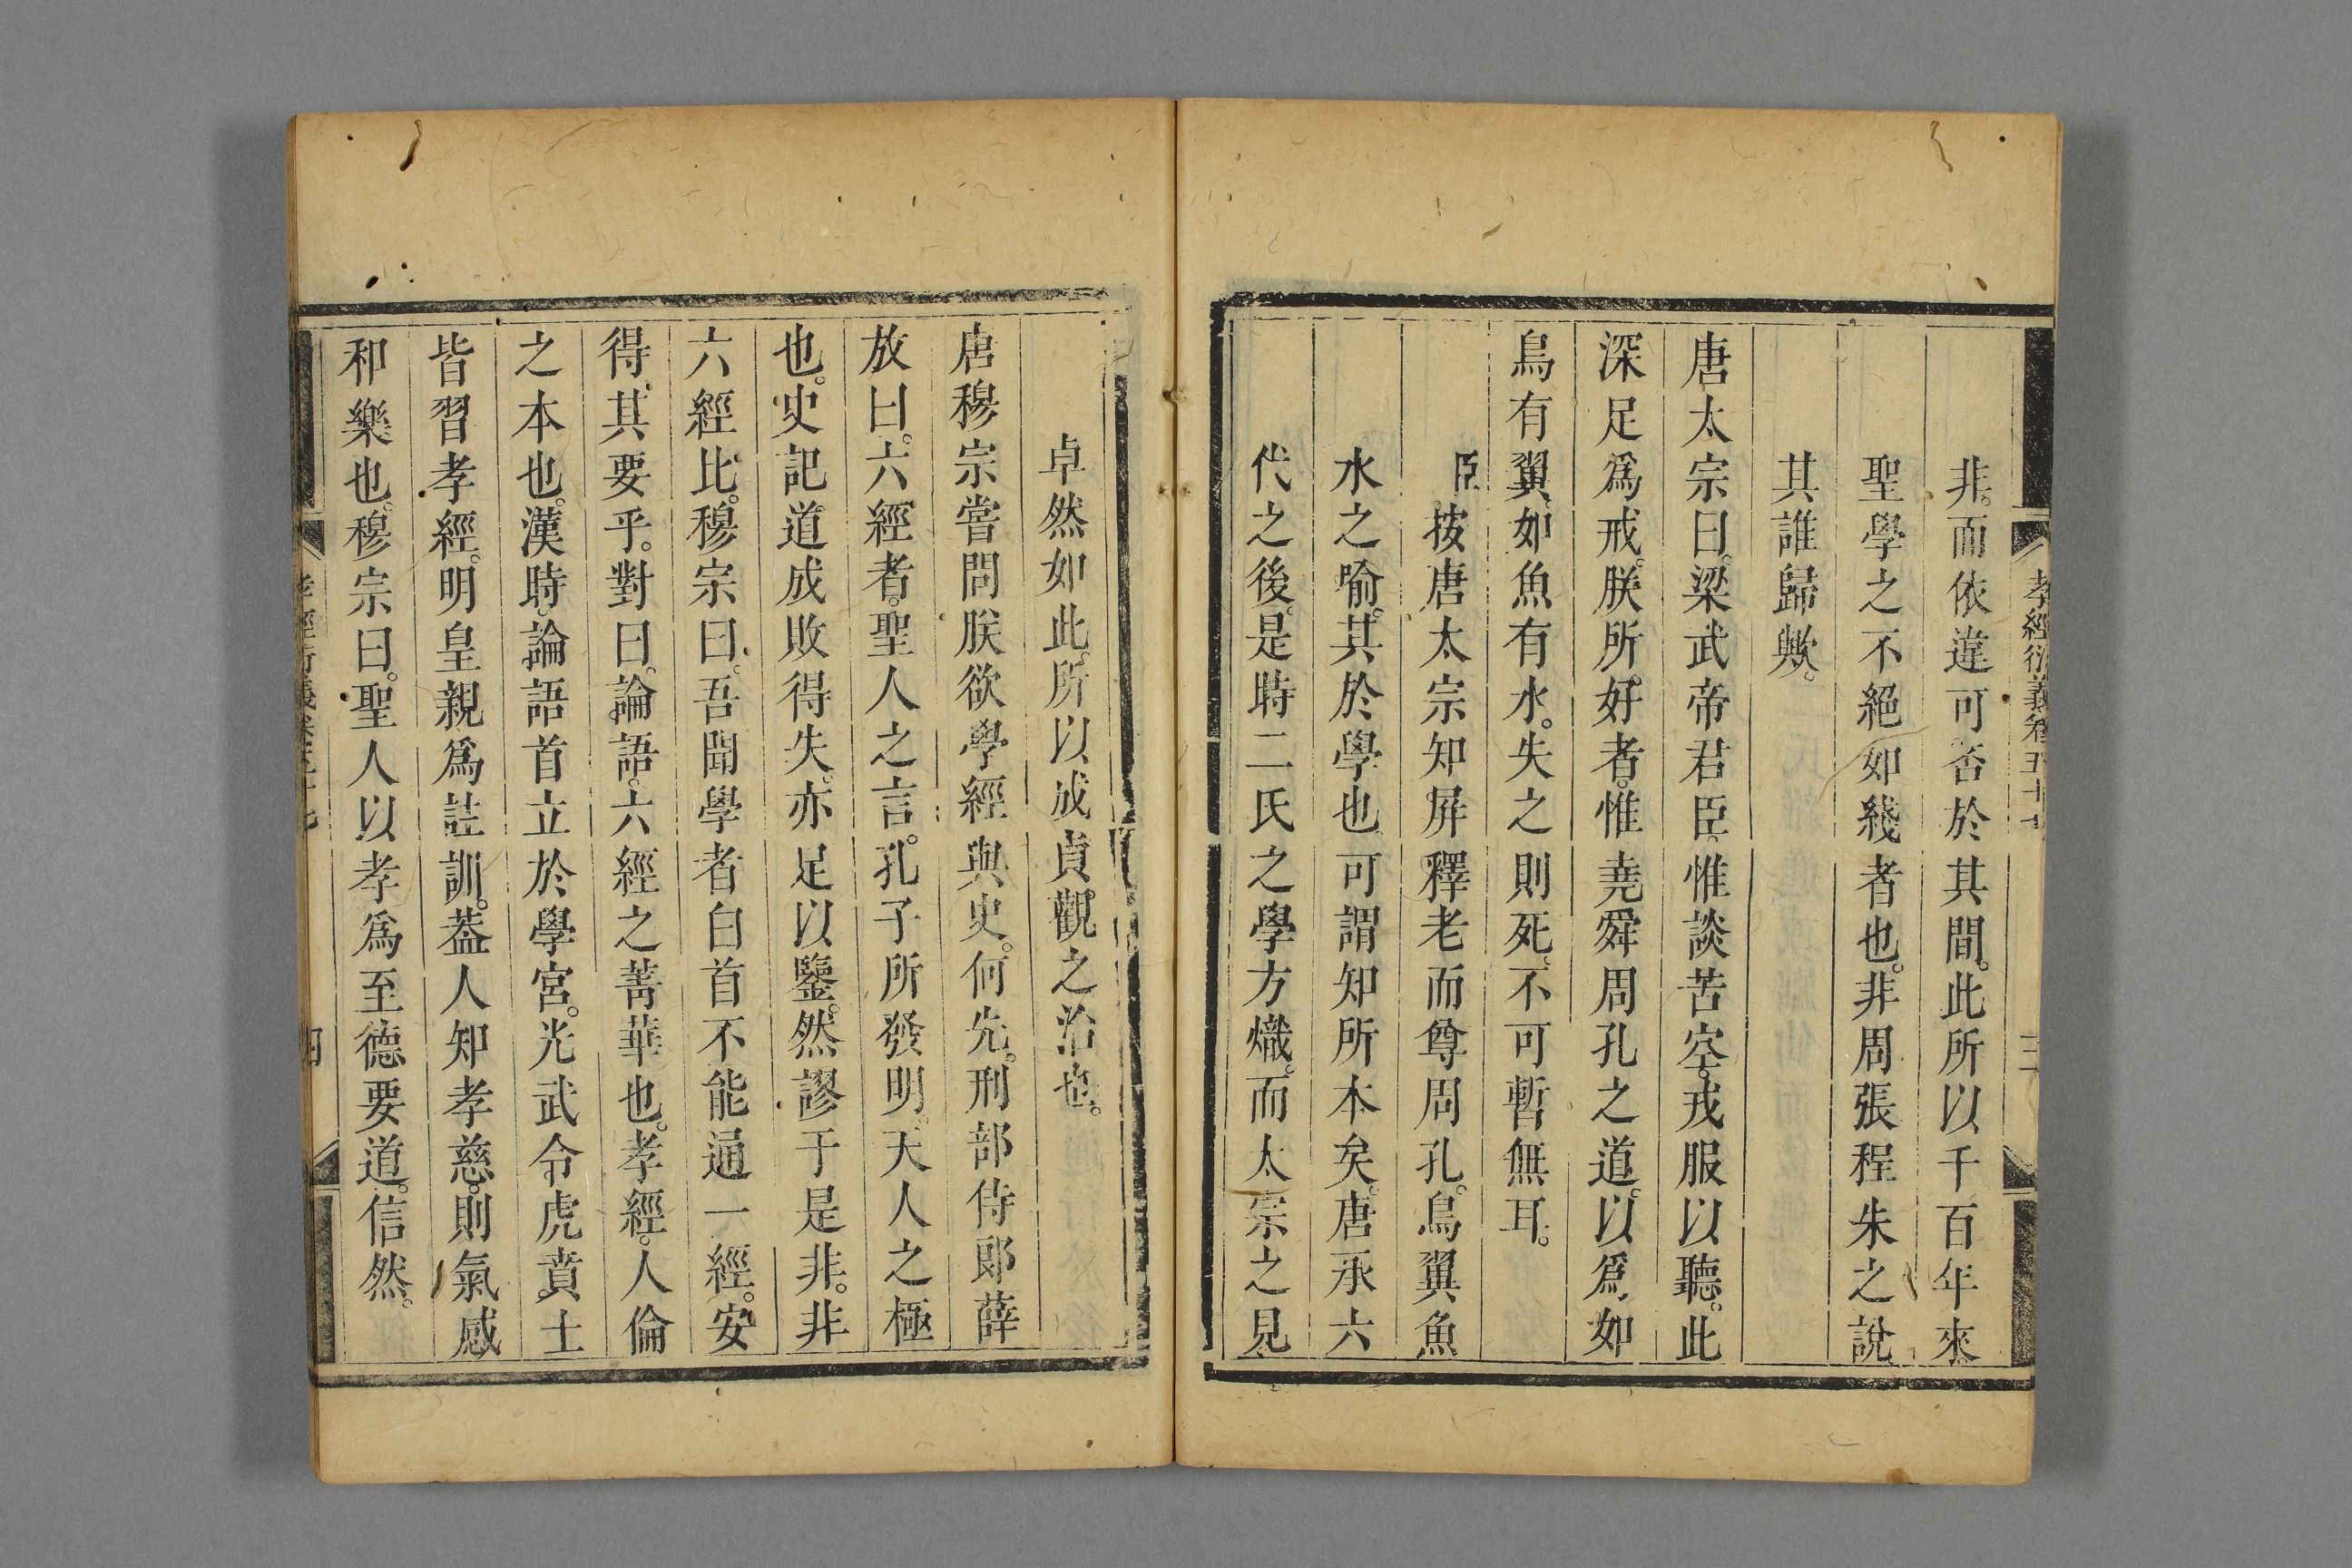 孝經衍義卷五十七
三
非。而依違可否於其間。此所以千百年來。
聖學之不絕如綫者也。非周張程朱之說。
其誰歸歟。
唐太宗曰。梁武帝君臣。惟談苦空。戎服以聽。此
深足爲戒。朕所好者。惟堯舜周孔之道。以爲如
鳥有翼。如魚有水。失之則死。不可暫無耳。
臣按唐太宗知屏釋老而尊周孔。鳥翼魚
水之喻。其於學也。可謂知所本矣。唐承六
代之後。是時二氏之學方熾。而太宗之見
卓然如此。所以成貞觀之治也。
唐穆宗嘗問朕欲學經與史。何先。刑部侍郎薛
放曰。六經者。聖人之言。孔子所發明。天人之極
也。史記道成敗得失。亦足以鑒。然謬于是非。非
六經比。穆宗曰。吾聞學者白首不能通一經。安
得其要乎。對曰。論語。六經之菁華也。孝經。人倫
之本也。漢時。論語首立於學宮。光武令虎賁士
皆習孝經。明皇親爲註訓。葢人知孝慈。則氣感
和樂也。穆宗曰。聖人以孝爲至德要道。信然。
孝經衍義卷五十七
四